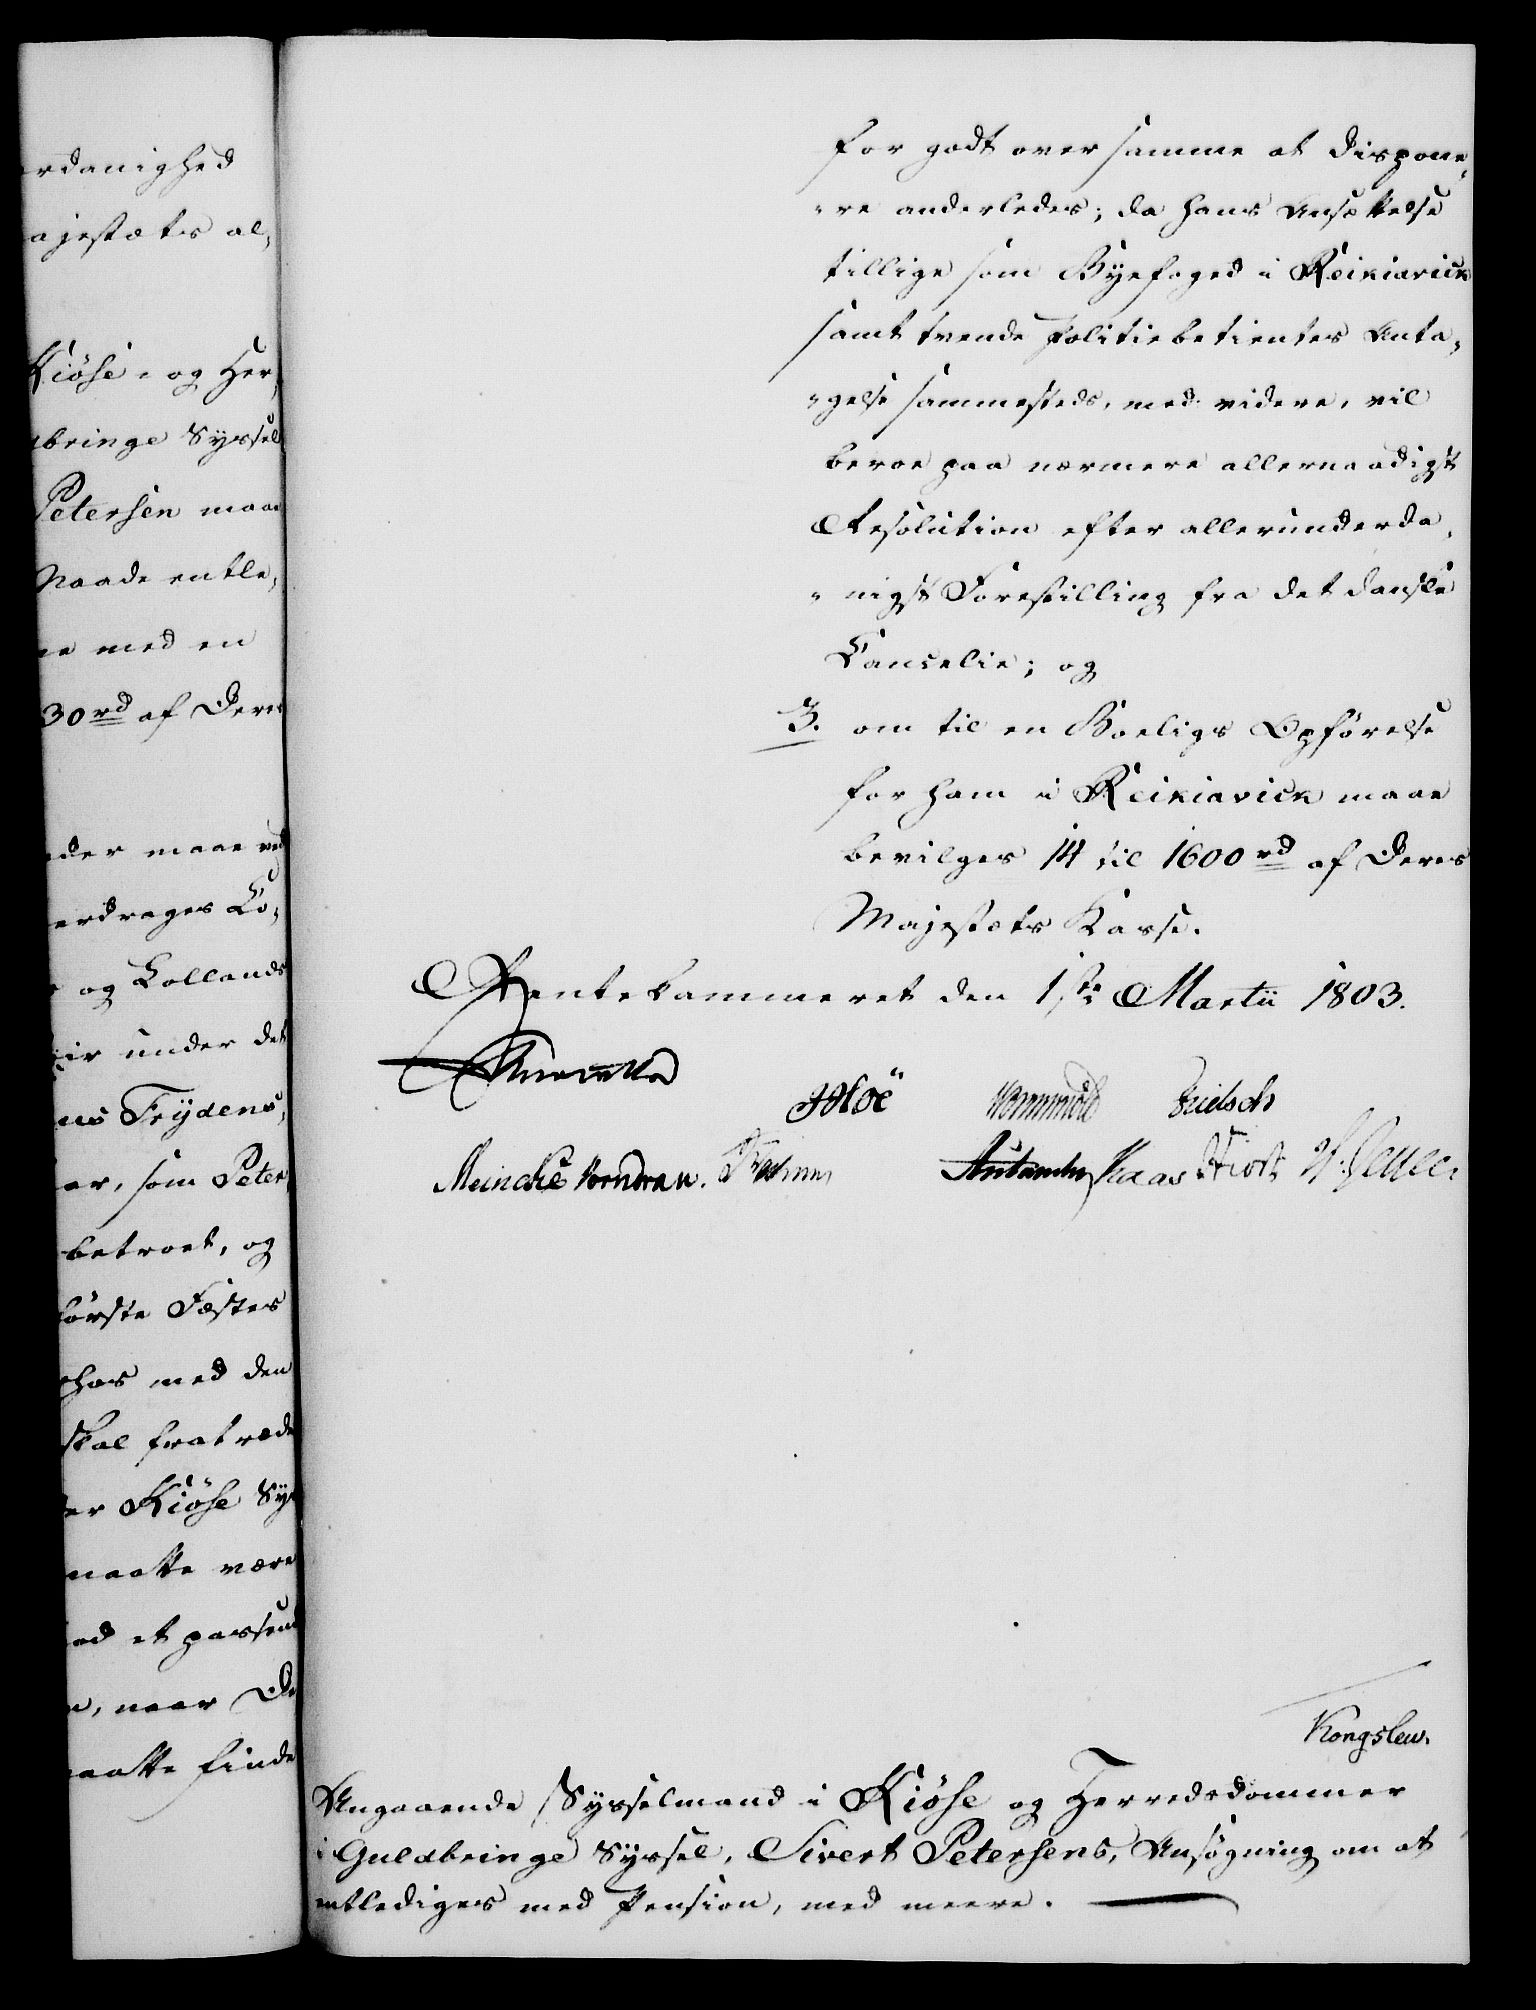 rdanighed
ajestæts al,
Kiöse- og Her,
bringe Syssel
Petersen maae
Naade entle,
med en
30 rd af Deres
der maae ved
erdrages Co,
og Lollands
ir under det
ns Frydens,
er, som Peter
betroet, og
förste Fæstes
has med den
skal fratræde
er Kiöse Sys
maatte være
ad et passend
, naar De
aatte finde
for godt over samme at dispone,
"re anderledes; da hans Ansættelse
tillige som Byefoged i Reikiavick
samt tvende Politiebetientes Anta,
"gelse sammesteds, med videre, vil
beroe paa nærmere allernaadigst
Resolution efter allerunderda,
"nigst Forestilling fra det danske
Cancelie; og
3. om til en Boeligs Opförelse
for ham i Reikiavick maae
bevilges 14 til 1600 rd af Deres
Majestæts Kasse.
Rentekammeret den 1ste Martii 1803.
Hoë Wormskiold
Meincke Wormdran. Kaas Hiort
Kongslew.
Angaaende Sysselmand i Kiöse og Herredsdommer
i Guldbringe Syssel, Sivert Petersens, Ansøgning om at
entlediges med Pension, med meere.